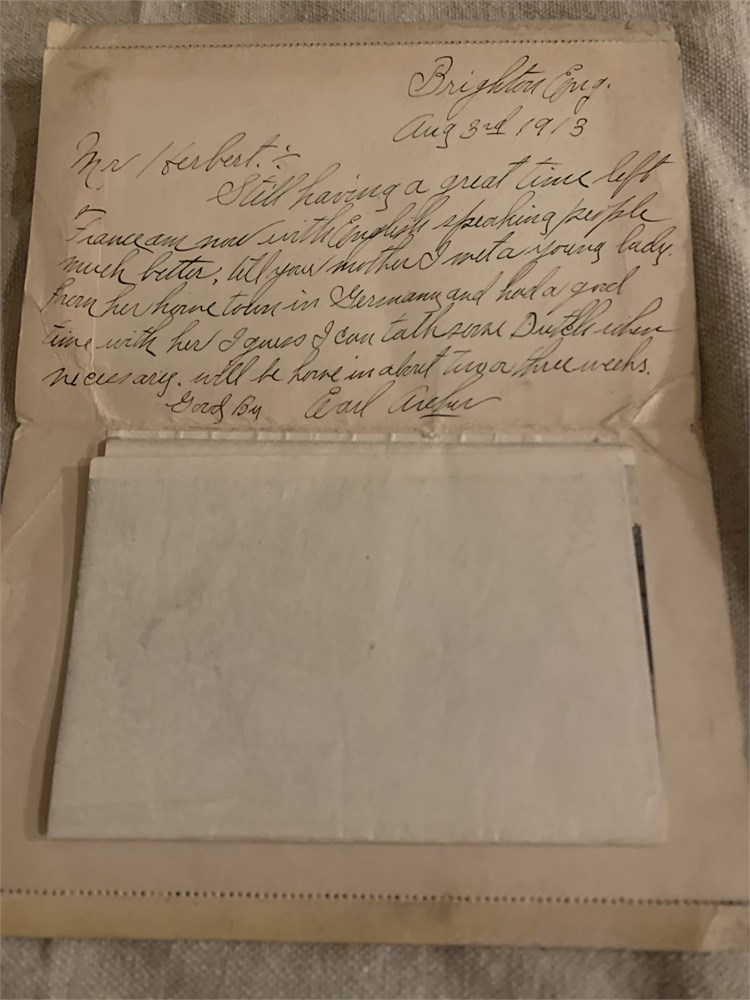 Brighton Eng.
Aug 3rd 1913
Mr Herbert:-
Still having a great time left
France am now with English speaking people
much better, tell your mother I met a young lady
from her home town in Germany and had a good
time with her I guess I can talk some Dutch when
necessary. will be home in about two or three weeks.
Good By Earl Archer